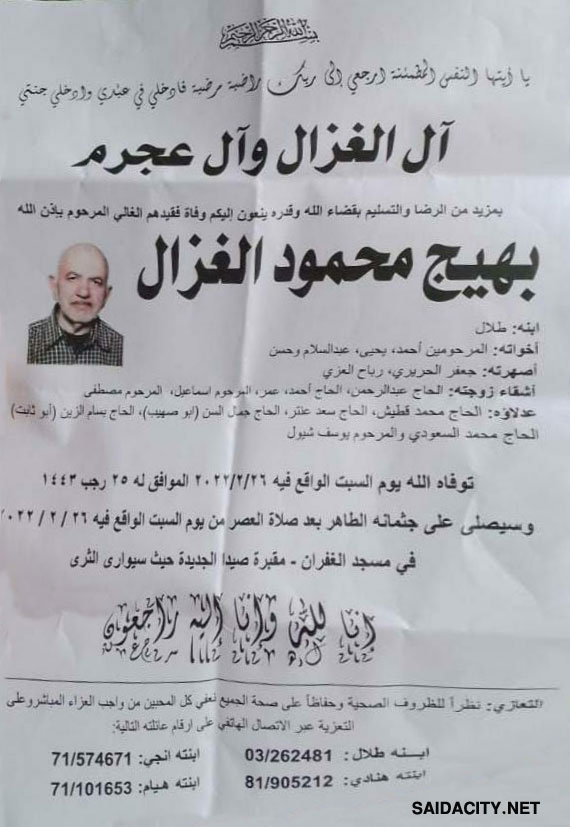 بسم الله الرحمن الرحيم
يا أيتها النفس المطمئنة ارجعي إلى ربك راضية مرضية فادخلي في عبادي وادخلي جنتي
آل الغزال وآل عجرم
بمزيد من الرضا والتسليم بقضاء الله وقدره ينعون إليكم وفاة فقيدهم الغالي المرحوم بإذن الله
بهيج محمود الغزال
ابنه: طلال
أخوانه: المرحومين أحمد، يحيى، عبدالسلام وحسن
أصهرته: جعفر الحريري، رباح العزي
أشقاء زوجته: الحاج عبدالرحمن، الحاج أحمد، عمر، المرحوم اسماعيل، المرحوم مصطفى
عدلاؤه: الحاج محمد قطيش، الحاج سعد عنتر، الحاج جمال السن (ابو صهيب)، الحاج بسام الزين (أبو ثابت)
الحاج محمد السعودي والمرحوم يوسف شبول
توفاه الله يوم السبت الواقع فيه ٢٠٢٢/٢/٢٦ الموافق له ٢٥ رجب ١٤٤٣
وسيصلى على جثمانه الطاهر بعد صلاة العصر من يوم السبت الواقع فيه ٢٦ / ٢ / ٢٠٢٢
في مسجد الغفران - مقبرة صيدا الجديدة حيث سيوارى الثرى
إنا لله وإنا إليه راجعون
التعازي: نظراً للظروف الصحية وحفاظاً على صحة الجميع نعفي كل المحبين من واجب العزاء المباشر وعلى
التعزية عبر الاتصال الهاتفي على ارقام عائلته التالية:
ابنه طلال: 03/262481 ابنته انجي: 71/574671
ابنته هنادي: 81/905212 ابنته هيام: 71/101653
SAIDACITY.NET